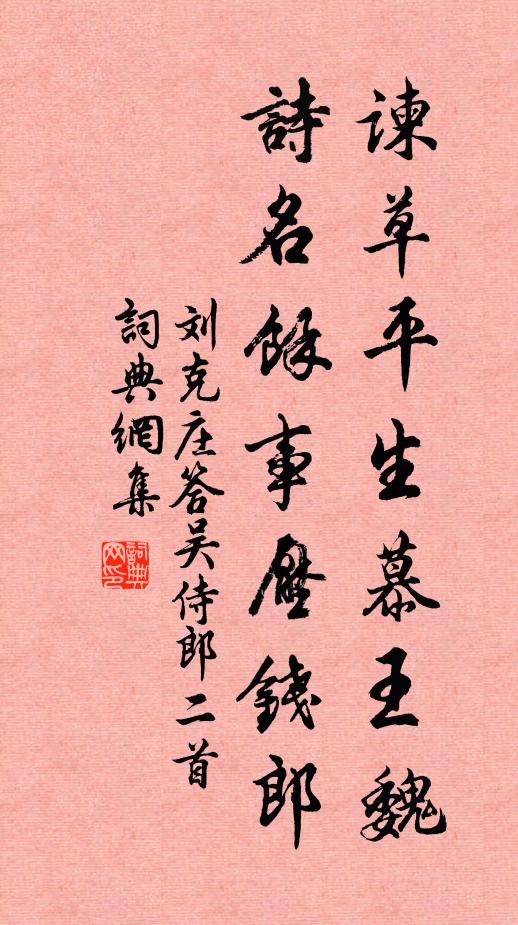 諫草平生慕王魏
詩名餘事壓錢郎
刘克庄答吴侍郎二首
詞典網集
詞典网印